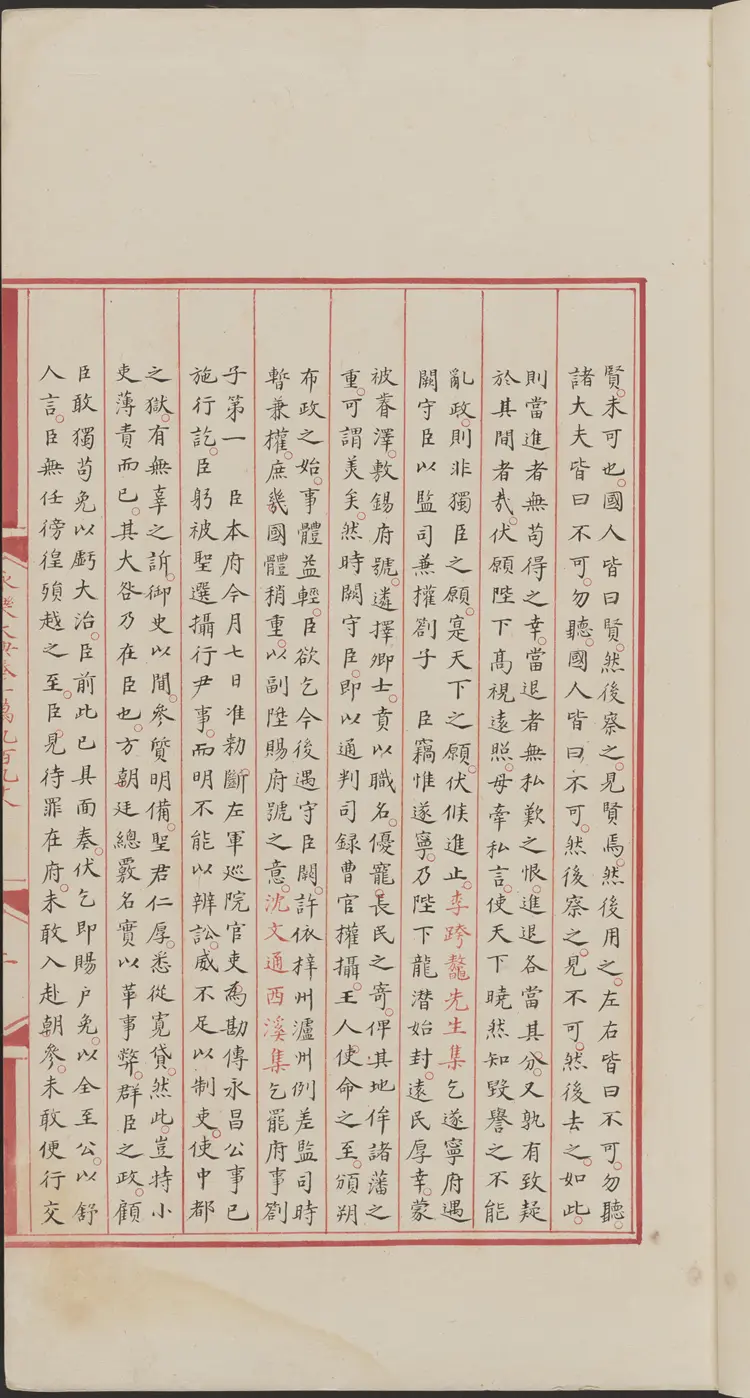 賢。未可也。國人皆曰賢。然後察之。見賢焉。然後用之。左右皆曰不可。勿聽。
諸大夫皆曰不可。勿聽。國人皆曰不可。然後察之。見不可。然後去之。如此。
則當進者無苟得之幸。當退者無私歎之恨。進退各當其分。又孰有致疑
於其間者哉。伏願陛下高視遠照。毋牽私言。使天下曉然知毀譽之不能
亂政。則非獨臣之願。寔天下之願。伏候進止。李跨鼇先生集乞遂寧府遇
闕守臣以監司兼權劄子 臣竊惟遂寧。乃陛下龍潛始封。遠民厚幸。蒙
被眷澤。敷錫府號。遴擇卿士。賁以職名。優寵長民之寄。俾其地侔諸藩之
重。可謂美矣。然時闕守臣。即以通判司録曹官權攝。王人使命之至。頒朔
布政之始。事體益輕。臣欲乞今後遇守臣闕。許依梓州瀘州例差監司時
暫兼權。庶幾國體稍重。以副陞賜府號之意。沈文通西溪集乞罷府事劄
子第一 臣本府今月七日准勑斷左軍巡院官吏爲勘傳永昌公事已
施行訖。臣躬被聖選攝行尹事。而明不能以辨訟。威不足以制吏。使中都
之獄。有無辜之訴。御史以聞。參質明備。聖君仁厚。悉從寬貸。然此豈特小
吏薄責而已。其大咎乃在臣也。方朝廷總覈名實。以革事弊。群臣之政。顧
臣敢獨苟免以虧大治。臣前此已具面奏。伏乞即賜戶免。以全至公。以舒
人言。臣無任徬徨殞越之至。臣見待罪在府。未敢入赴朝參。未敢便行交